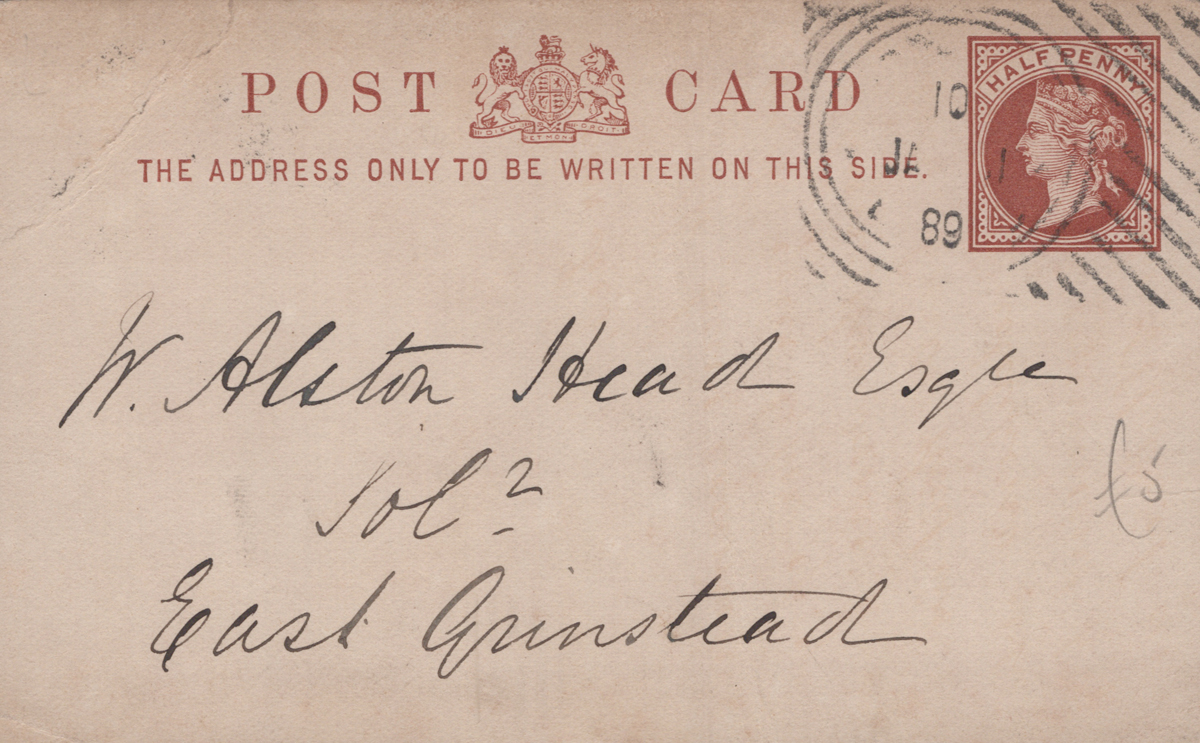 POST CARD
DIEU ET MON DROIT
THE ADDRESS ONLY TO BE WRITTEN ON THIS SIDE.
HALFPENNY
10
JA 1
89
W. Alston Head Esqre
Solr
East Grinstead
£5